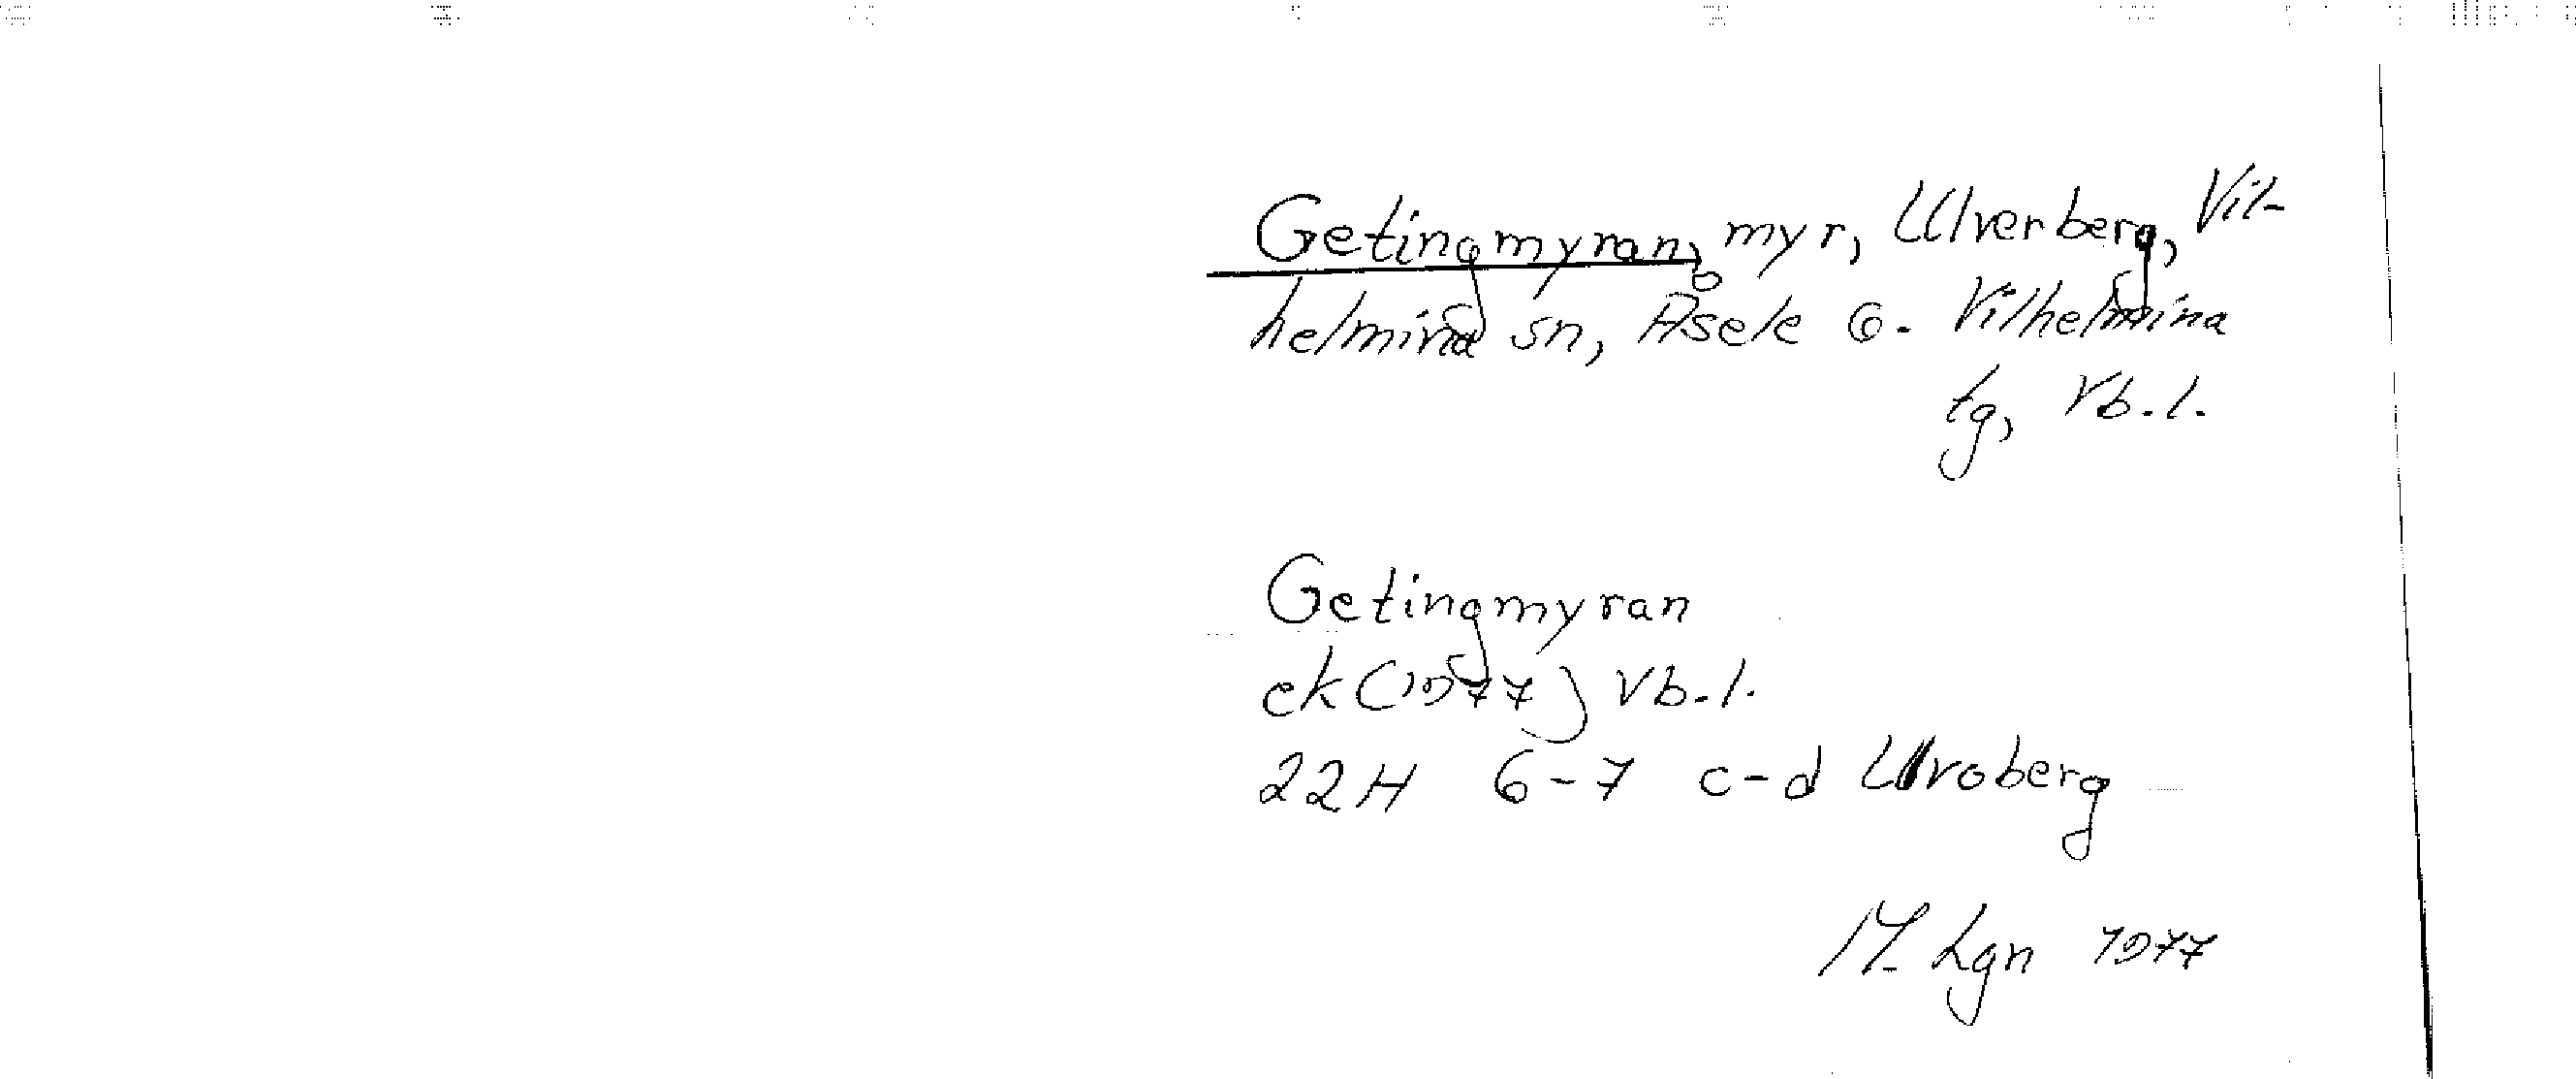 Getingmyran, myr, Ulverberg, Vil-
helmina sn, Åsele o. Vilhelmina
tg, Vb.l.
Getingmyran
ek (1977) Vb.l.
22H 6-7 c-d Ulvoberg
M. Lgn 1977